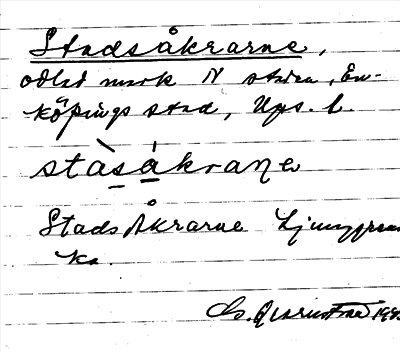 Stadsåkrarne,
odlad mark N staden, En-
köpings stad, Ups. l.
stàsåkraɳe
Stads Åkrarne Ljunggrens
ka.